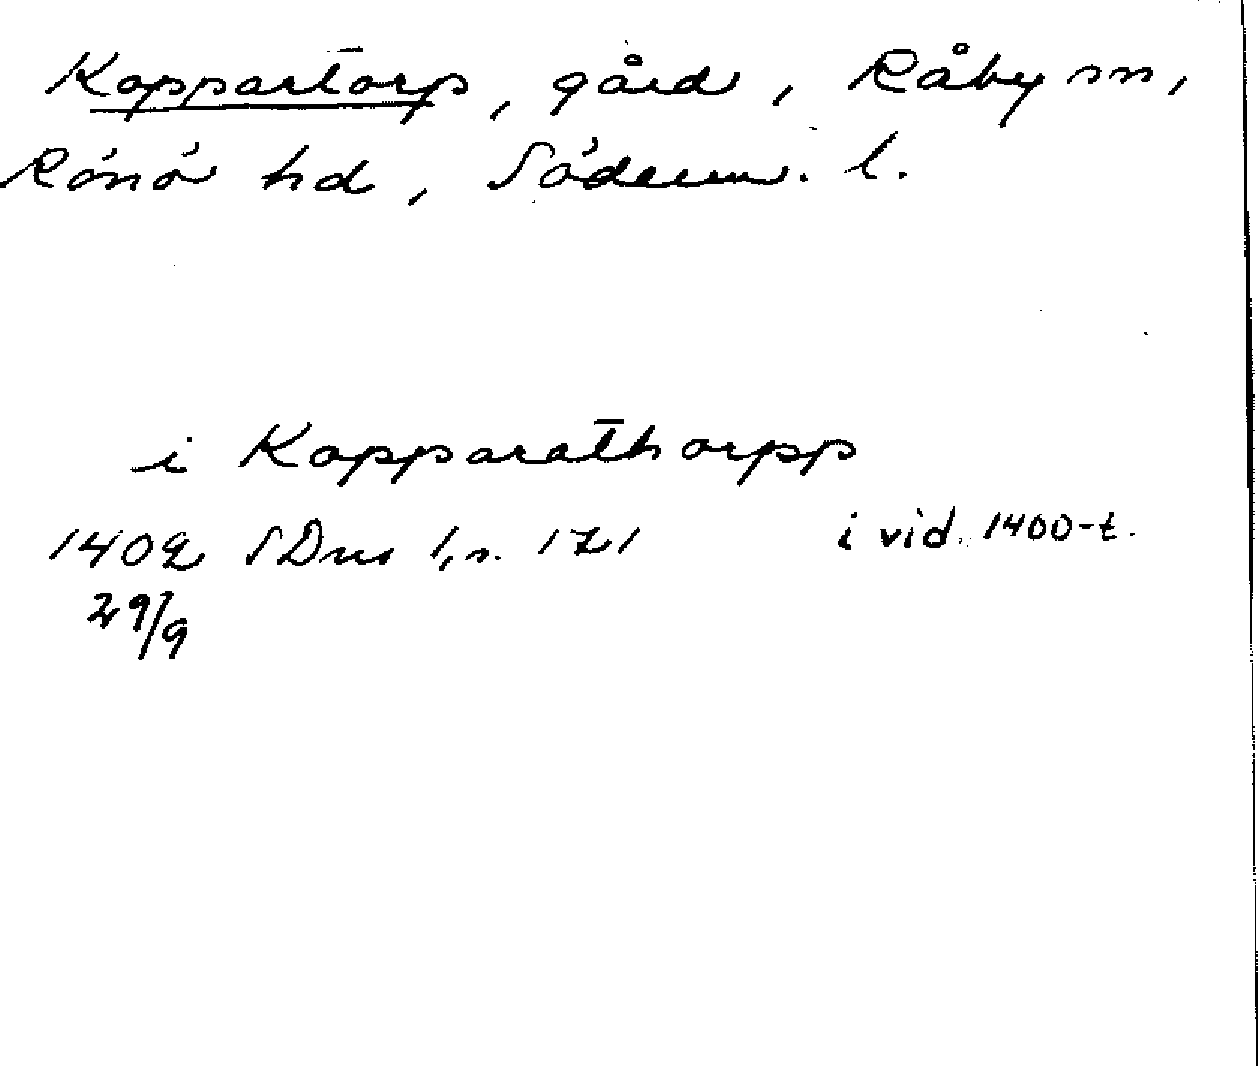 Koppartorp, gård, Råby sn,
Rönö hd, Söderm. l.
i Kopparathorpp
1402 SDns 1, s. 121 i vid. 1400-t.
29/9